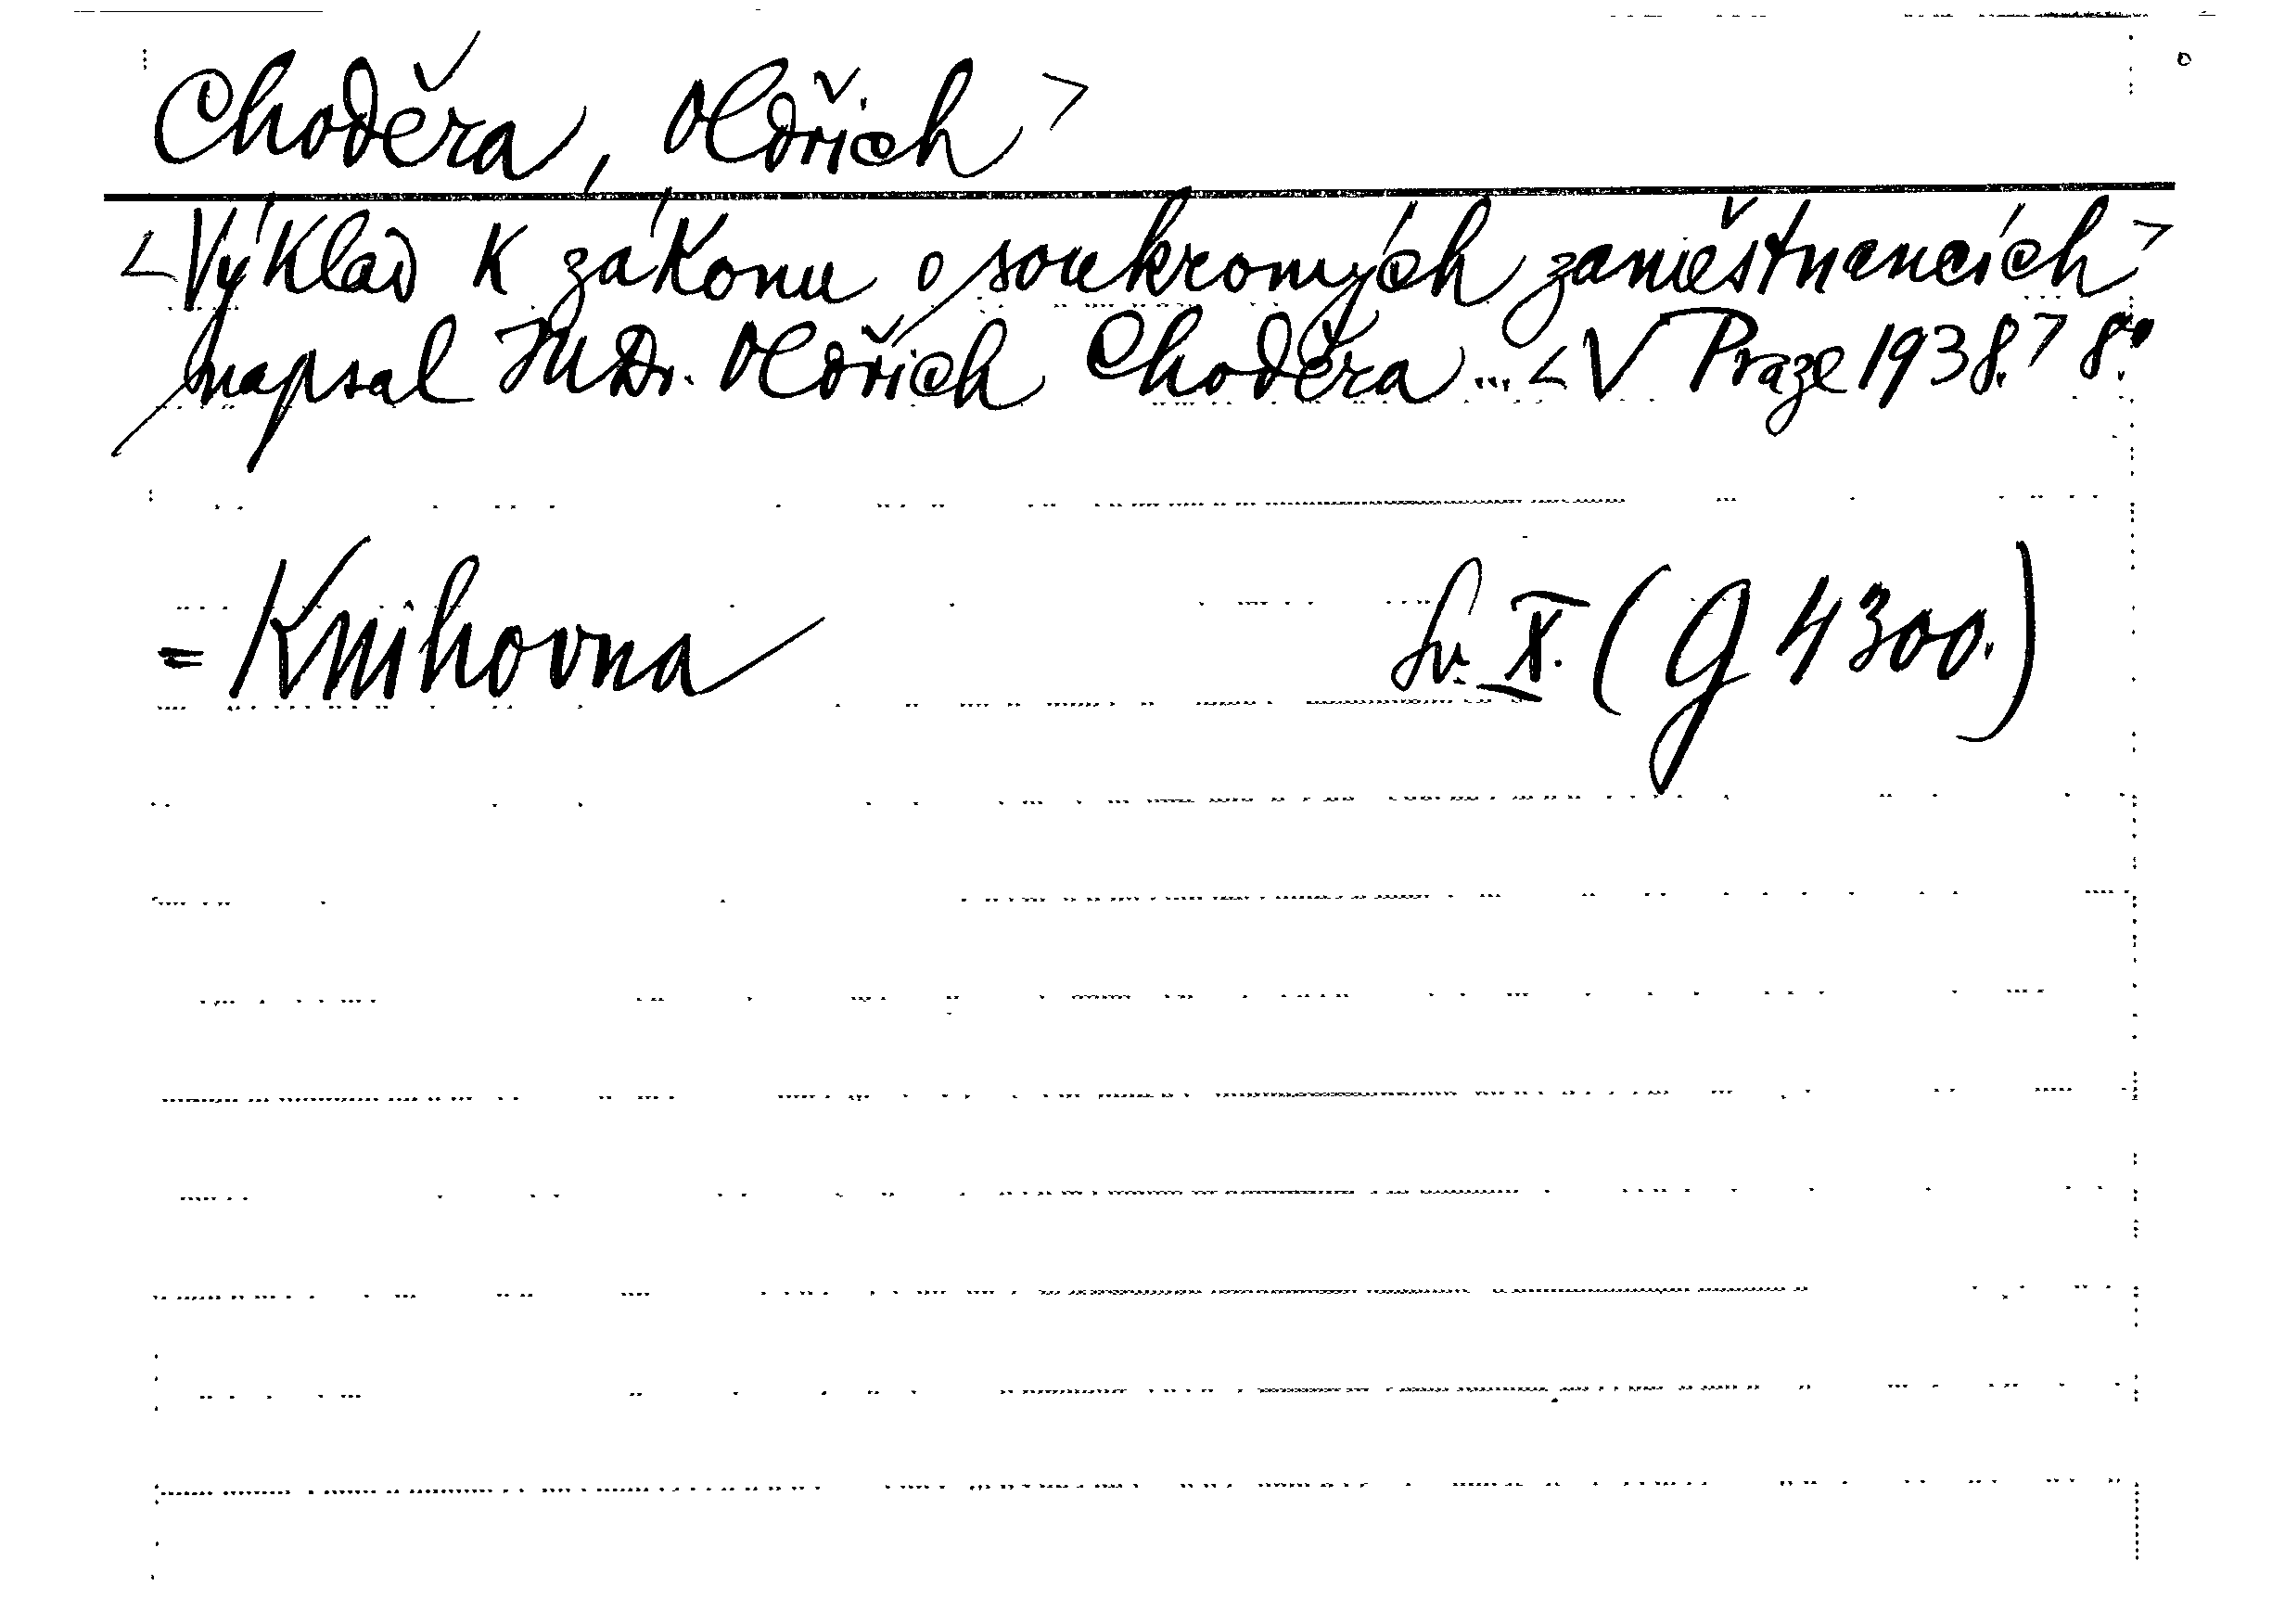 Choděra, Oldřich >
< Výklad k zákonu o soukromých zaměstnancích >
napsal JUDr. Oldřich Choděra ... < V Praze 1938. > 8.°
= Knihovna Sv. X. (G 4300.)